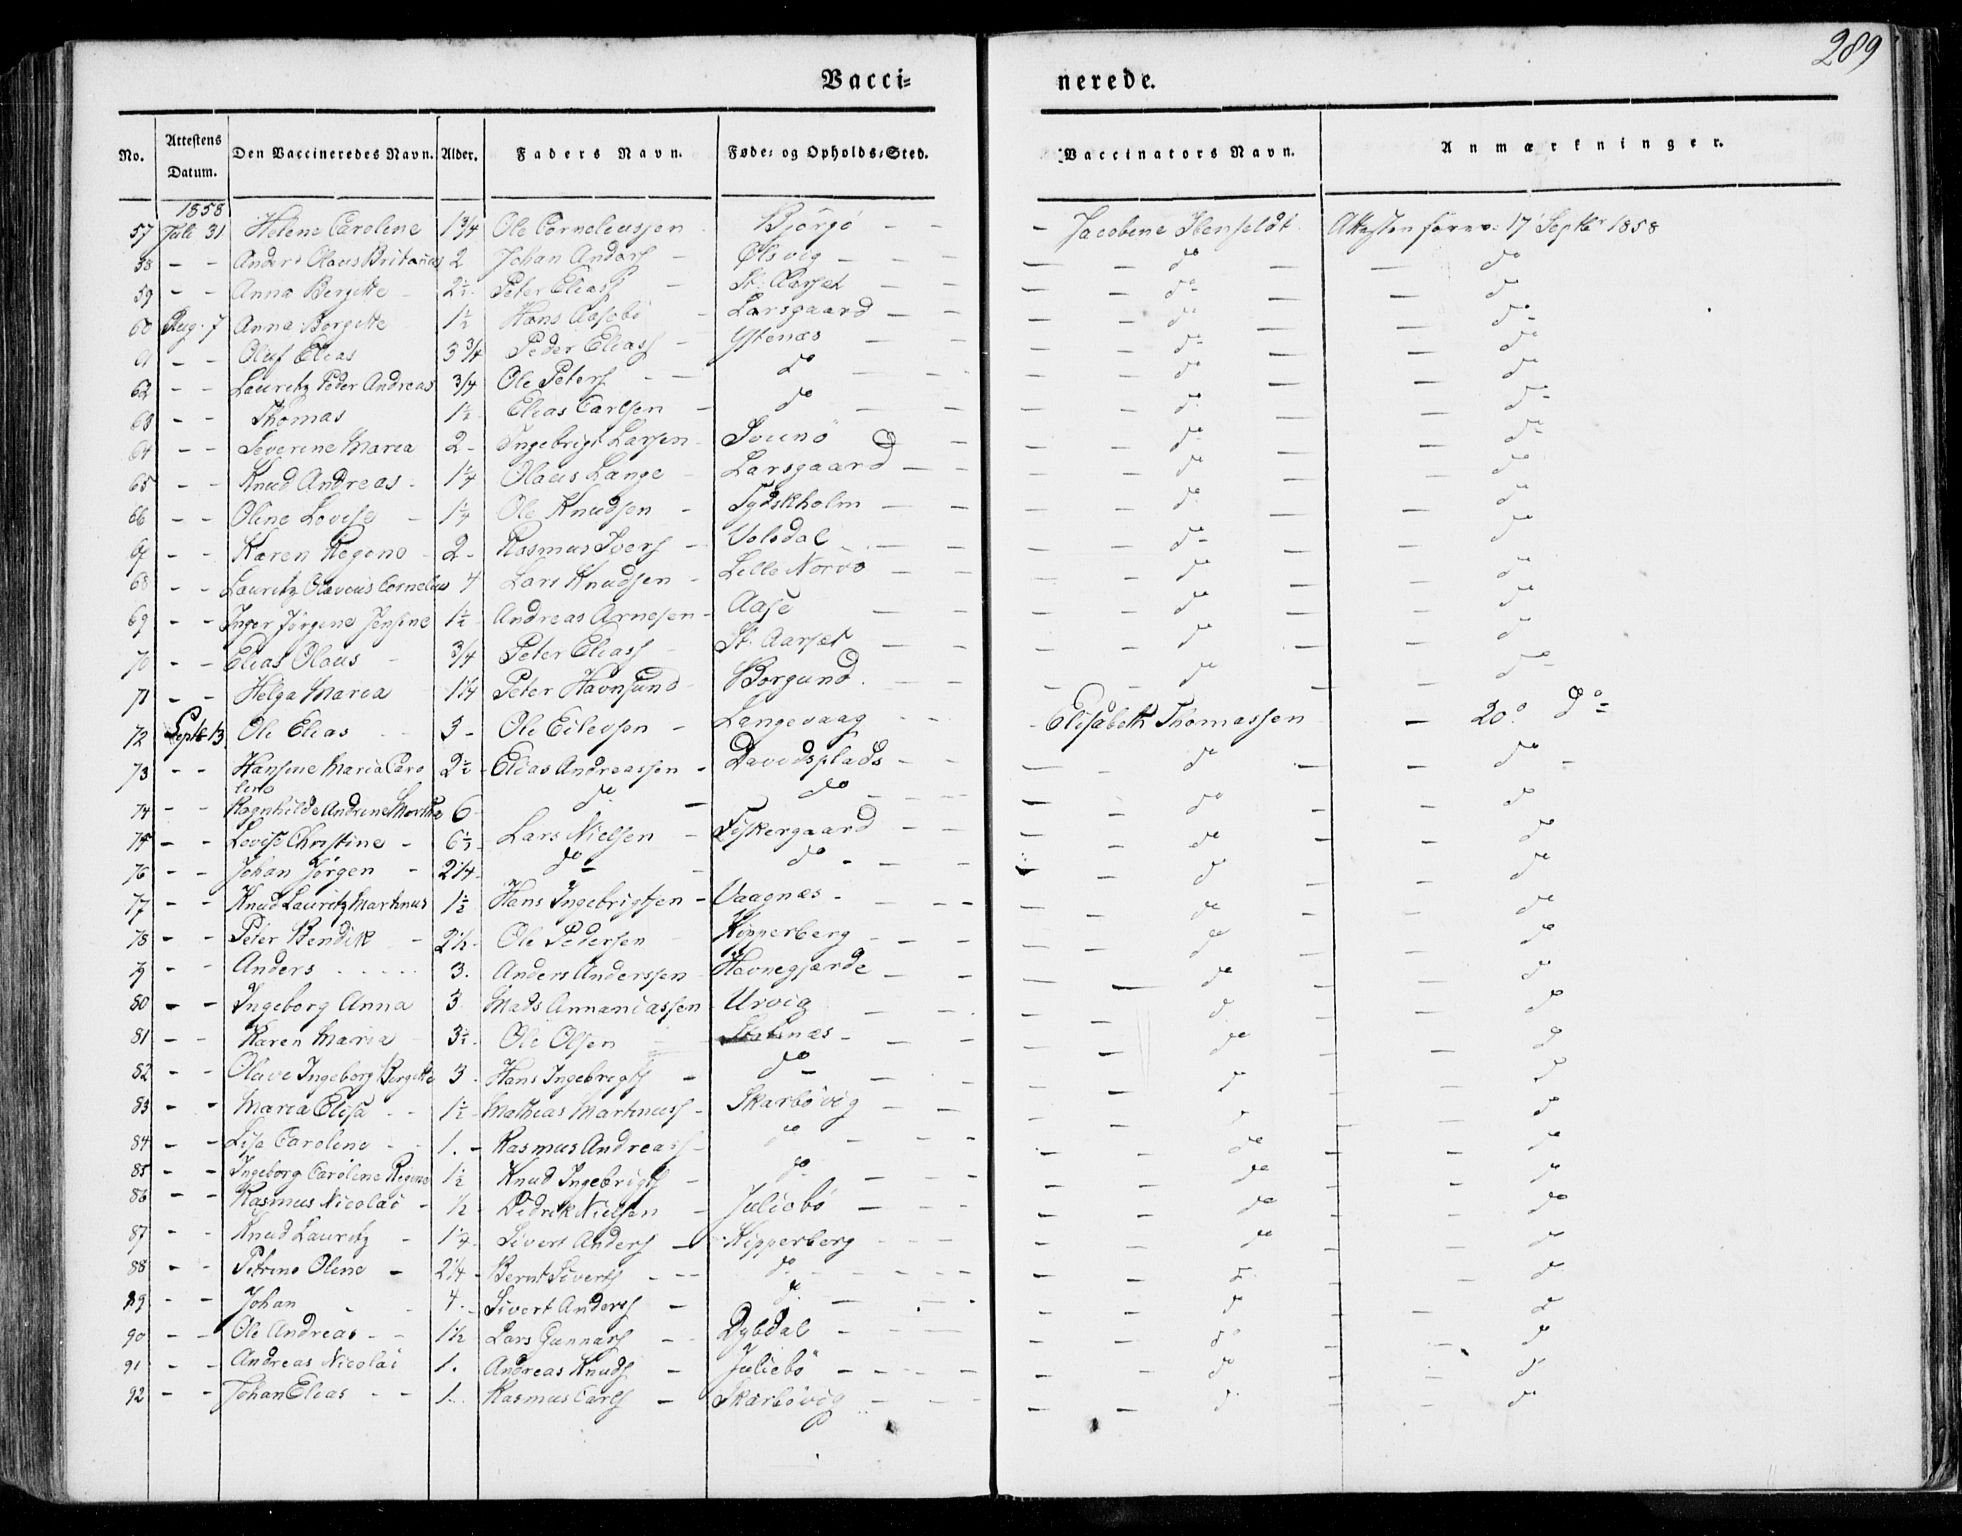 289
Vacci=nerede.
No. Attestens Datum. Den Vaccineredes Navn. Alder. Faders Navn. Føde= og Opholds=Sted. Vaccinators Navn. Anmærkninger.
1858
57 Juli 31 Helene Caroline 1 3/4 Ole Corneliussen Bjørgø - - - Jacobine Ibenfeldt Attesten forev: 17 Septbr 1858
58 - - Anders Olaus Britanus 2 Johan Anders Ølsvig - - - do do
59 - - Anna Bergitte 2 1/2 Peter Elias St. Aarset - - do do
60 Aug. 7 Anna Bergitte 1 1/2 Hans Aasebø Larsgaard - - do do
61 - - Oluf Elias 3 3/4 Peder Elias Ystenæs - - do do
62 - - Lauritz Peder Andreas 3/4 Ole Peters - - do do do
63 - - Thomas 1 1/2 Elias Carlsen - do do do
64 - - Severine Maria 2 - Ingebrigt Larsen - Sounø do do
65 - - Knud Andreas - 1 1/4 Olaus Lange - Larsgaard - - do do
66 - - Oline Lovise - 1 1/4 Ole Knudsen - Tydskholm - - do do
67 - - Karen Regine - 2 - Rasmus Ivers - Volsdal - - do do
68 - - Lauritz Olavus Cornelius 4 Lars Knudsen - Lille Nørvø - - do do
69 - - Inger Jørgine Jensine 1 1/2 Andreas Arnesen - Aase - - do do
70 - - Elias Olaus - 3/4 Peter Elias - St. Aarset - - do do
71 - - Helga Maria 1 1/4 Peter Havnsund - Borgund. - - do do
72 Septb 13 Ole Elias - - 3 - Ole Eilevsen - Langevaag - - - Elisabeth Thomassen - 20de do
73 - - Hansine Maria Caro 2 1/2 - Elias Andreassen - Davidsplads - - do do
line
74 - - Ragnhilde Andrine Martha 6 do - do - - do do
75 - - Lovise Christine - 6 1/2 - Lars Nielsen - Fiskergaard - - do do
76 - - Johan Jørgen - 2 1/4 - do - do - - - do do
77 - - Knud Lauritz Martinus 1 1/2 Hans Ingebrigtsen - Vaagnæs - - - - do do
78 - - Peter Bendik - 2 1/2 - Ole Pedersen Kipperberg - - - do do
79 - - Anders ..... 3. Anders Anderssen Havnegjærde - - do do
80 - - Ingeborg Anna 3 Mads Annaniassen Urvig - - do do
81 - - Karen Maria - 3 1/2 - Ole Olsen - - do do
82 - - Olave Ingeborg Bergitte 3 - Hans Ingebrigts - do - - - do do
83 - - Maria Elisa - - 1 1/2 - Mathias Martinus - Skarbøvig - - do do
84 - - Lisa Caroline - - 1. - Rasmus Andreas - do - - - do do
85 - - Ingeborg Caroline Regine 1 1/2 Knud Ingebrigts - do - - - do do
86 - - Rasmus Nicolai - 1/2 Didrik Nielsen - Juliebø - - - do do
87 - - Knud Lauritz - 1 1/4 - Sivert Anders - Kipperberg - - - do do
88 - - Petrine Oline - 2 1/4 - Bernt Siverts - - - do - - - do do
89 - - Johan - - 4. - Sivert Anders - do. - - - do do
90 - - Ole Andreas - - 1 1/2 Lars Gunnars - - Dybdal - - - do do
91 - - Andreas Nicolai 1. Andreas Knuds - Juliebø - - - - do do
92 - - Johan Elias - - 1. Rasmus Carls - Skarbøvig - - do do